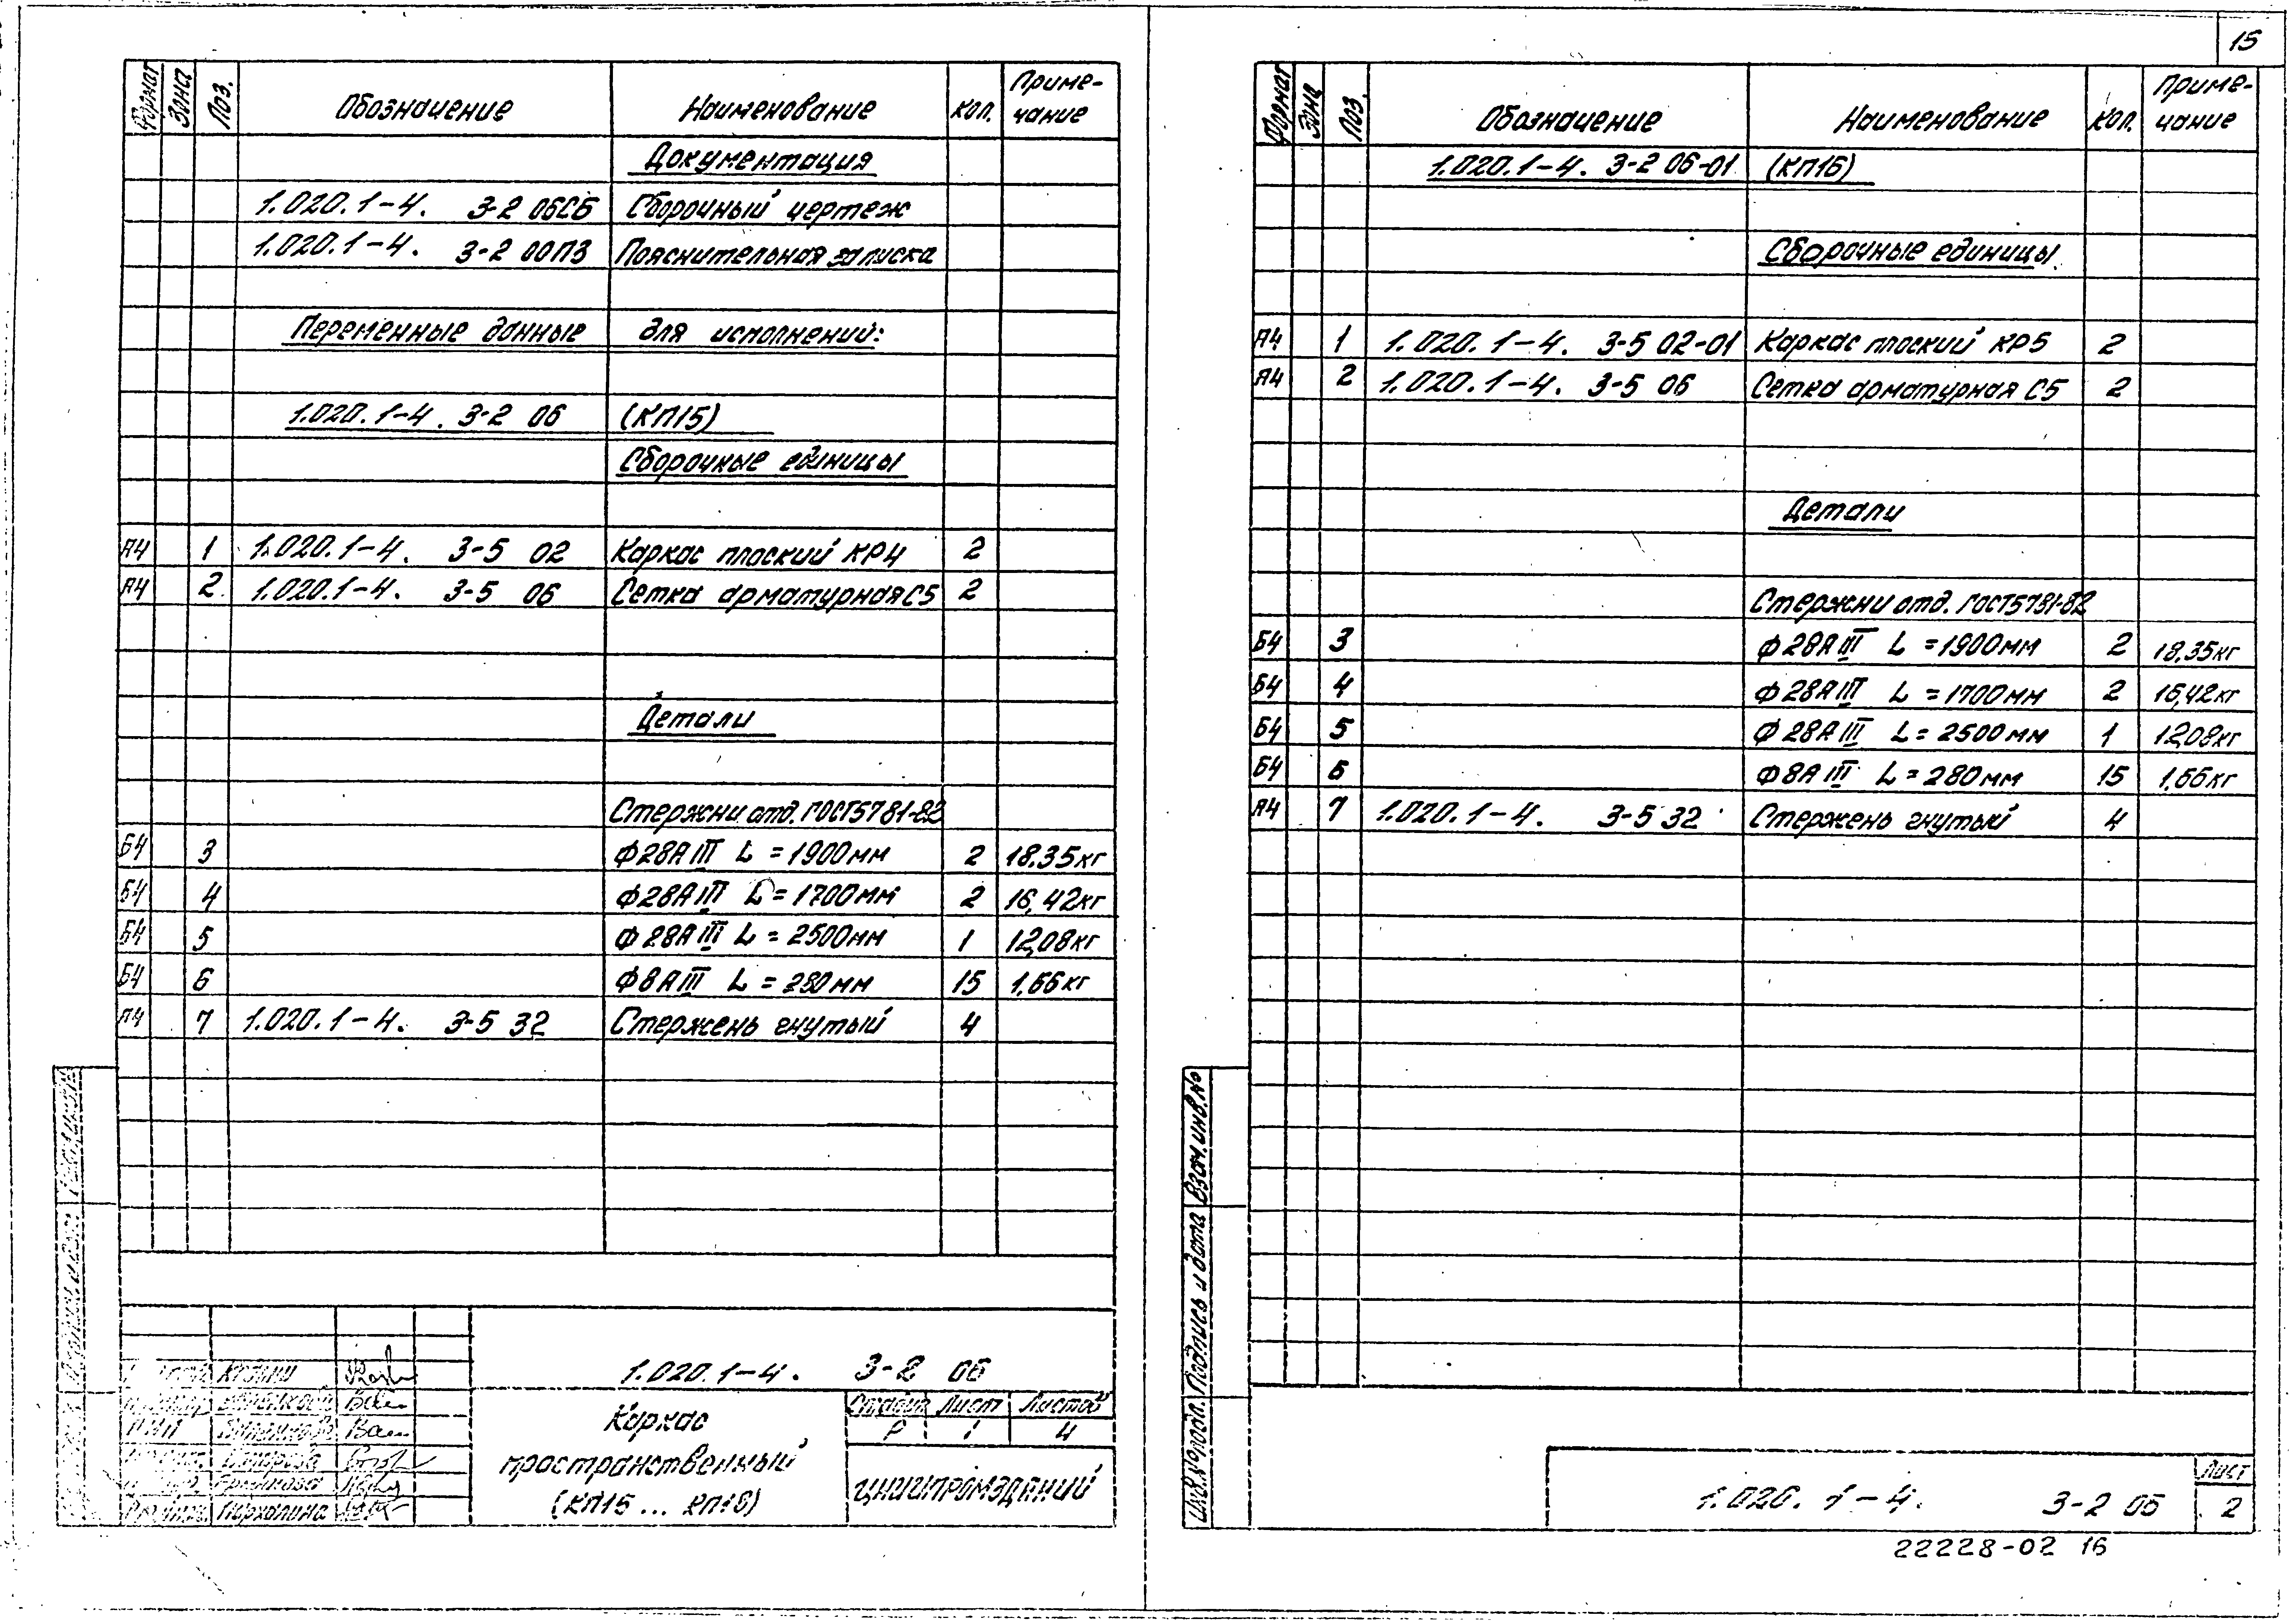 15
Формат Зона Поз. Обозначение Наименование Кол. Приме-чание
Документация
1.020.1-4. 3-2 06СБ Сборочный чертеж
1.020.1-4. 3-2 00ПЗ Пояснительная записка
Переменные данные для исполнений:
1.020.1-4. 3-2 06 (КП15)
Сборочные единицы
А4 1 1.020.1-4. 3-5 02 Каркас плоский КР4 2
А4 2 1.020.1-4. 3-5 06 Сетка арматурная С5 2
Детали
Стержни отд. ГОСТ5781-82
Б4 3 Ф28АIII L=1900мм 2 18,35кг
Б4 4 Ф28АIII L=1700мм 2 16,42кг
Б4 5 Ф28АIII L=2500мм 1 12,08кг
Б4 6 Ф8АIII L=280мм 15 1,66кг
А4 7 1.020.1-4. 3-5 32 Стержень гнутый 4
1.020.1-4. 3-2 06
Каркас
пространственный
(КП15... КП18)
Стадия Лист Листов
Р 1 4
ЦНИИПРОМЗДАНИЙ
Формат Зона Поз. Обозначение Наименование Кол. Приме-чание
1.020.1-4. 3-2 06-01 (КП16)
Сборочные единицы
А4 1 1.020.1-4. 3-5 02-01 Каркас плоский КР5 2
А4 2 1.020.1-4. 3-5 06 Сетка арматурная С5 2
Детали
Стержни отд. ГОСТ5781-82
Б4 3 Ф28АIII L=1900мм 2 18,35кг
Б4 4 Ф28АIII L=1700мм 2 16,42кг
Б4 5 Ф28АIII L=2500мм 1 12,08кг
Б4 6 Ф8АIII L=280мм 15 1,66кг
А4 7 1.020.1-4. 3-5 32 Стержень гнутый 4
Инв.№подл. Подпись и дата Взам.инв.№
1.020.1-4. 3-2 06
Лист
2
22228-02 16